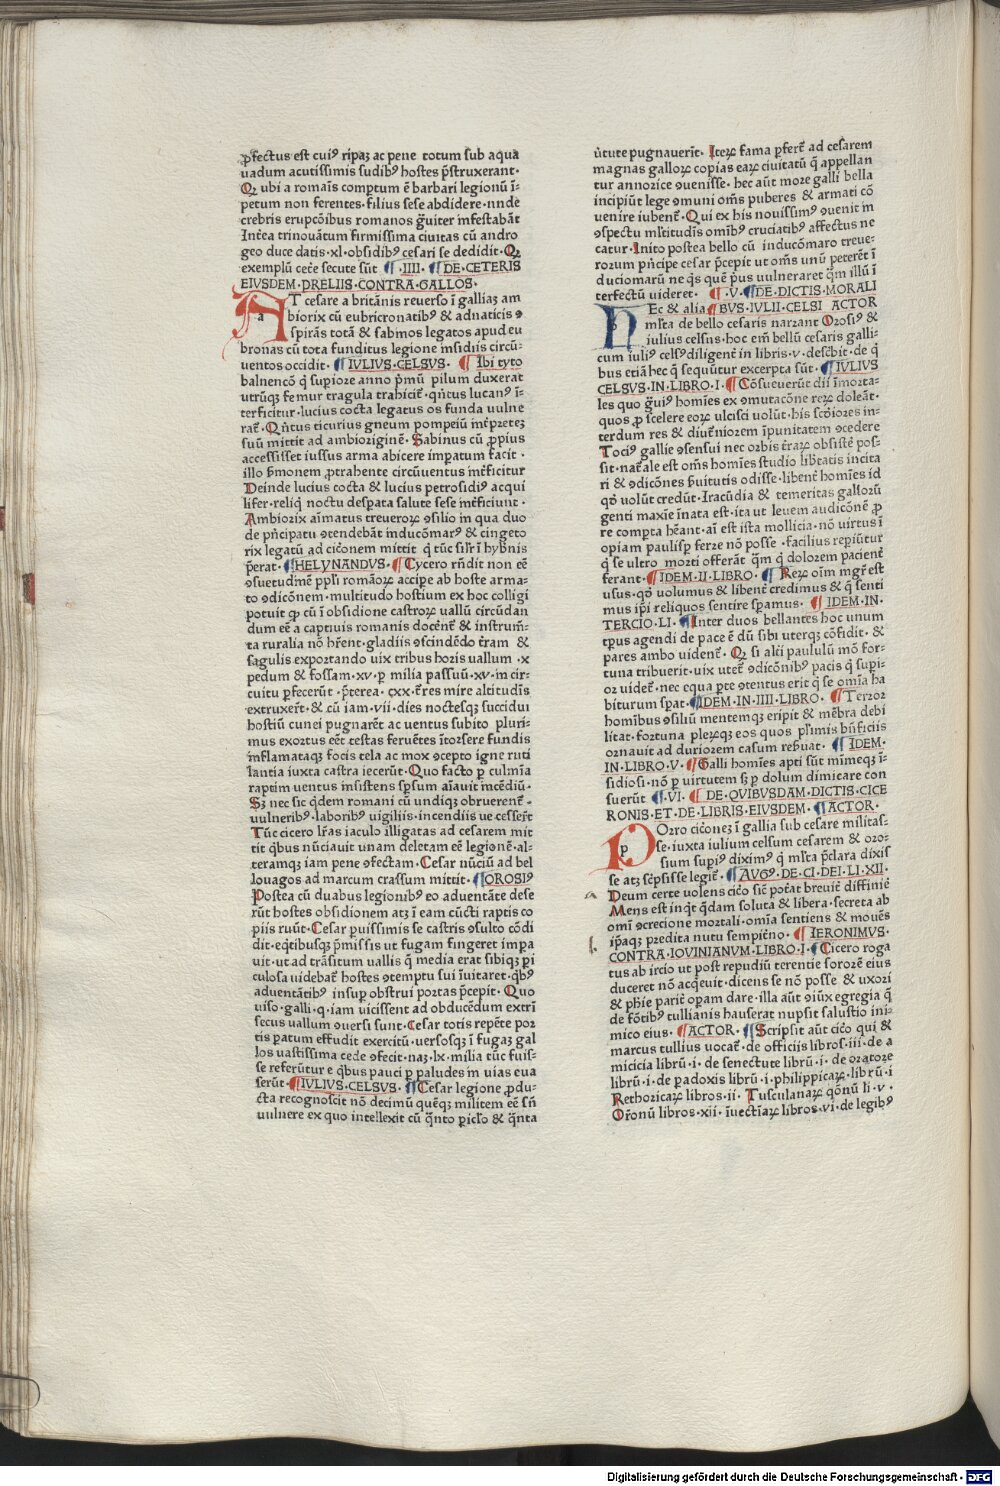 ꝓfectus est cuiꝰ ripaꝫ ac pene totum sub aqua
uadum acutissimis sudibꝰ hostes p̄struxerant·
Qꝫ ubi a romaīs comꝑtum ē barbari legionū ī⸗
petum non ferentes· filius sese abdidere·
crebris erupcōibus romanos g̃uiter infestabāt
Inťea trinouātum firmissima ciuitas cū andro
geo duce datis·xl·obsidibꝰ cesari se dedidit· Qꝫ
exemplū ceťe secute sūt ¶·IIII· ¶DE·CETERIS
EIVSDEM·PRELIIS·CONTRA·GALLOS·
AT cesare a britānis reuerso ī gallias am
biorix cū eubricronatibꝰ & adnaticis ꝯ
spirās totā & sabinos legatos apud eu
bronas cū tota funditus legione insidiis circū⸗
uentos occidit· ¶IVLIVS·CELSVS· ¶Ibi tyto
balnencō q̄ supiore anno p̄mū pilum duxerat
utrūqꝫ femur tragula trahicit̄·qn̄tus lucanꝰ ī⸗
terficitur·lucius cocta legatus os funda uulne
rat̄· Qn̄tus ticurius gneum pompeiū inťpreteꝫ
suū mittit ad ambioriginē· Sabinus cū ꝓpius
accessisset iussus arma abicere imꝑatum facit·
illo ẜmonem ꝓtrahente circūuentus inťficitur
Deinde lucius cocta & lucius petrosidiꝰ acqui
lifer·reliq̄ noctu desꝑata salute sese inťficiunt·
Ambiorix aīmatus treueroꝝ ꝯsilio in qua duo
de pn̄cipatu ꝯtendebāt inducōmarꝰ & cingeto
rix legatū ad cicōnem mittit q̄ tūc silr̄ ī hybnīs
p̄erat· ¶HELYNANDVS· ¶Cycero rn̄dit non eē
ꝯsuetudinē ppl̄i romāoꝝ accipe ab hoste arma⸗
to ꝯdicōnem·multitudo hostium ex hoc colligi
potuit ꝙ cū ī obsidione castroꝝ uallū circūdan
dum eē a captiuis romanis docent̄ & instrum̄⸗
ta ruralia nō hr̄ent·gladiis ꝯscindēdo t̄ram &
sagulis exportando uix tribus horis uallum·x
pedum & fossam·xv·ꝑ milia passuū·xv·in cir⸗
cuitu ꝑfecerūt· p̄terea·cxx·t̄res mire altitudīs
extruxer̄t·& cū iam·vii·dies noctesqꝫ succidui
hostiū cunei pugnarēt ac uentus subito pluri⸗
mus exortus eēt testas feruētes ītorsere fundis
inflamataqꝫ focis tela ac mox ꝯcepto igne ruti
lantia iuxta castra iecerūt· Quo facto ꝑ culmīa
raptim uentus insistens sꝑsum aīauit incēdiū·
Sꝫ nec sic q̄dem romani cū undiqꝫ obruerent̄·
uulneribꝰ·laboribꝰ uigiliis·incendiis ue cesser̄t
Tūc cicero lr̄as iaculo illigatas ad cesarem mit
tit q̄bus nūciauit unam deletam eē legionē·al⸗
teramqꝫ iam pene ꝯfectam· Cesar nūciū ad bel
louagos ad marcum crassum mittit· ¶OROSIꝰ
Postea cū duabus legionibꝰ eo aduentāte dese
rūt hostes obsidionem atꝫ ī eam cūcti raptis co
piis ruūt· Cesar puissimis se castris ꝯsulto cōdi
dit·eq̄tibusqꝫ p̄missis ut fugam fingeret impa
uit·ut ad trāsitum uallis q̄ media erat sibiqꝫ ꝑi
culosa uidebat̄ hostes ꝯtemptu sui īuitaret·q̄bꝰ
aduentātibꝰ insuꝑ obstrui portas p̄cepit· Quo
uiso·galli·q̄ iam uicissent ad obducēdum extrī
secus uallum ꝯuersi sunt· Cesar totis repēte por
tis ꝑatum effudit exercitū·uersosqꝫ ī fugaꝫ gal
los uastissima cede ꝯfecit·naꝫ·lx·milia tūc fuis⸗
se referūtur e q̄bus pauci ꝑ paludes in uias eua
serūt· ¶IVLIVS·CELSVS· ¶Cesar legione ꝓdu⸗
cta recognoscit nō decimū quēqꝫ militem eē sn̄
uulnere ex quo intellexit cū q̄nto ꝑicl̄o & q̄nta
ūtute pugnauerīt· Iteꝝ fama ꝑfert̄ ad cesarem
magnas galloꝝ copias eaꝝ ciuitatū q̄ appellan
tur annorice ꝯuenisse· hec aūt more galli bella
incipiūt lege ꝯmuni om̄s puberes & armati cō
uenire iubent̄· Qui ex his nouissimꝰ ꝯuenit in
ꝯspectu ml̄titudīs omībꝰ cruciatibꝰ affectus ne
catur· Inito postea bello cū inducōmaro treue⸗
rorum pn̄cipe cesar p̄cepit ut om̄s unū peterēt ī
duciomarū ne q̄s quē p̄us uulneraret q̄m illū ī
terfectū uideret· ¶·V· ¶DE·DICTIS·MORALI
BVS·IVLII·CELSI ACTOR
HEc & alia
ml̄ta de bello cesaris narrant Orosiꝰ &
iulius celsus·hoc em̄ bellū cesaris galli⸗
cum iuliꝰ celsꝰ diligent̄ in libris·v·descb̄it·de q̄
bus etiā hec q̄ seq̄untur excerpta sūt· ¶IVLIVS
CELSVS·IN·LIBRO·I· ¶Cōsueuerūt dii īmorta⸗
les quo g̃uiꝰ homīes ex ꝯmutacōne reꝝ doleāt·
quos ꝓ scelere eoꝝ ulcisci uolūt·his scd̄iores in⸗
terdum res & diut̄niorem īpunitatem ꝯcedere
Tociꝰ gallie ꝯsensui nec orbis t̄raꝝ obsistē pos⸗
sit·nat̄ale est om̄s homīes studio lib̄tatis incita
ri & ꝯdicōnes ẜuitutis odisse·libent̄ homīes id
qd̄ uolūt credūt· Iracūdia & temeritas gallorū
genti maxīe īnata est·ita ut leuem audicōnē ꝓ
re compta hēant·aī est ista mollicia·nō uirtus ī
opiam paulisꝑ ferre nō posse·facilius repiūtur
q̄ se ultro morti offerāt q̄m q̄ dolorem pacient̄
ferant· ¶IDEM·II·LIBRO· ¶Reꝝ oīm mgr̄ est
usus·qd̄ uolumus & libent̄ credimus & q̄ senti
mus ip̄i reliquos sentire sꝑamus· ¶IDEM·IN·
TERCIO·LI· ¶Inter duos bellantes hoc unum
tp̄us agendi de pace ē dū sibi uterqꝫ cōfidit·&
pares ambo uident̄· Qꝫ si alci paululū mō for⸗
tuna tribuerit·uix utet̄ ꝯdicōnibꝰ pacis q̄ supi⸗
or uidet̄·nec equa ꝑte ꝯtentus erit q̄ se omīa ha
biturum sꝑat· ¶IDEM·IN·IIII·LIBRO· ¶Terror
homībus ꝯsiliū mentemqꝫ eripit & mēbra debi
litat·fortuna pleꝝqꝫ eos quos pl̄imis bn̄ficiis
ornauit ad duriorem casum reẜuat· ¶IDEM·
IN·LIBRO·V· ¶Galli homīes apti sūt mimeqꝫ ī⸗
sidiosi·nō ꝑ uirtutem sꝫ ꝑ dolum dimicare con
suerūt ¶·VI· ¶DE·QVIBVSDAM·DICTIS·CICE
RONIS·ET·DE·LIBRIS·EIVSDEM· ¶ACTOR·
POrro cicōneꝫ ī gallia sub cesare militas⸗
se·iuxta iulium celsum cesarem & oro⸗
sium supiꝰ diximꝰ q̄ ml̄ta p̄clara dixis
se atꝫ sc̄psisse legit̄· ¶AVGꝰ·DE·CI·DEI·LI·XII·
Deum certe uolens cic̄o sic̄ poťat breuit̄ diffinit̄
Mens est inq̄t q̄dam soluta & libera·secreta ab
omī ꝯcrecione mortali·omīa sentiens & mouēs
ip̄aqꝫ predita nutu sempiťno· ¶IERONIMVS·
CONTRA·IOVINIANVM·LIBRO·I· ¶Cicero roga
tus ab ircio ut post repudiū terentie sororē eius
duceret nō acq̄euit·dicens se nō posse & uxori
& ph̄ie parit̄ oꝑam dare·illa aūt ꝯiūx egregia q̄
de fōtibꝰ tullianis hauserat nupsit salustio ini⸗
mico eius· ¶ACTOR· ¶Scripsit aūt cic̄o qui &
marcus tullius uocat̄·de officiis libros·iii·de a
micicia librū·i·de senectute librū·i·de oratore
librū·i·de ꝑadoxis librū·i·philippicaꝝ·librū·i
Rethoricaꝝ libros·ii· Tusculanaꝝ qōnū li·v·
Or̄onū libros·xii·īuectīaꝝ libros·vi·de legibꝰ
Digitalisierung gefördert durch die Deutsche Forschungsgemeinschaft - DFG